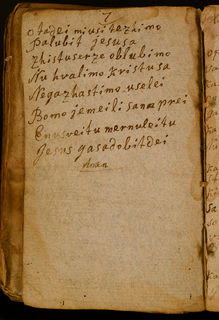 7
o tadei miusi tezhimo
Palubit jesusa
zhistuserze oblubimo
Nu hvalimo kristusa
Negazhastimo uselei
Bomo jemeili sanæ prei
Enusveitu mernuleitu
Jesus gasadobitdei